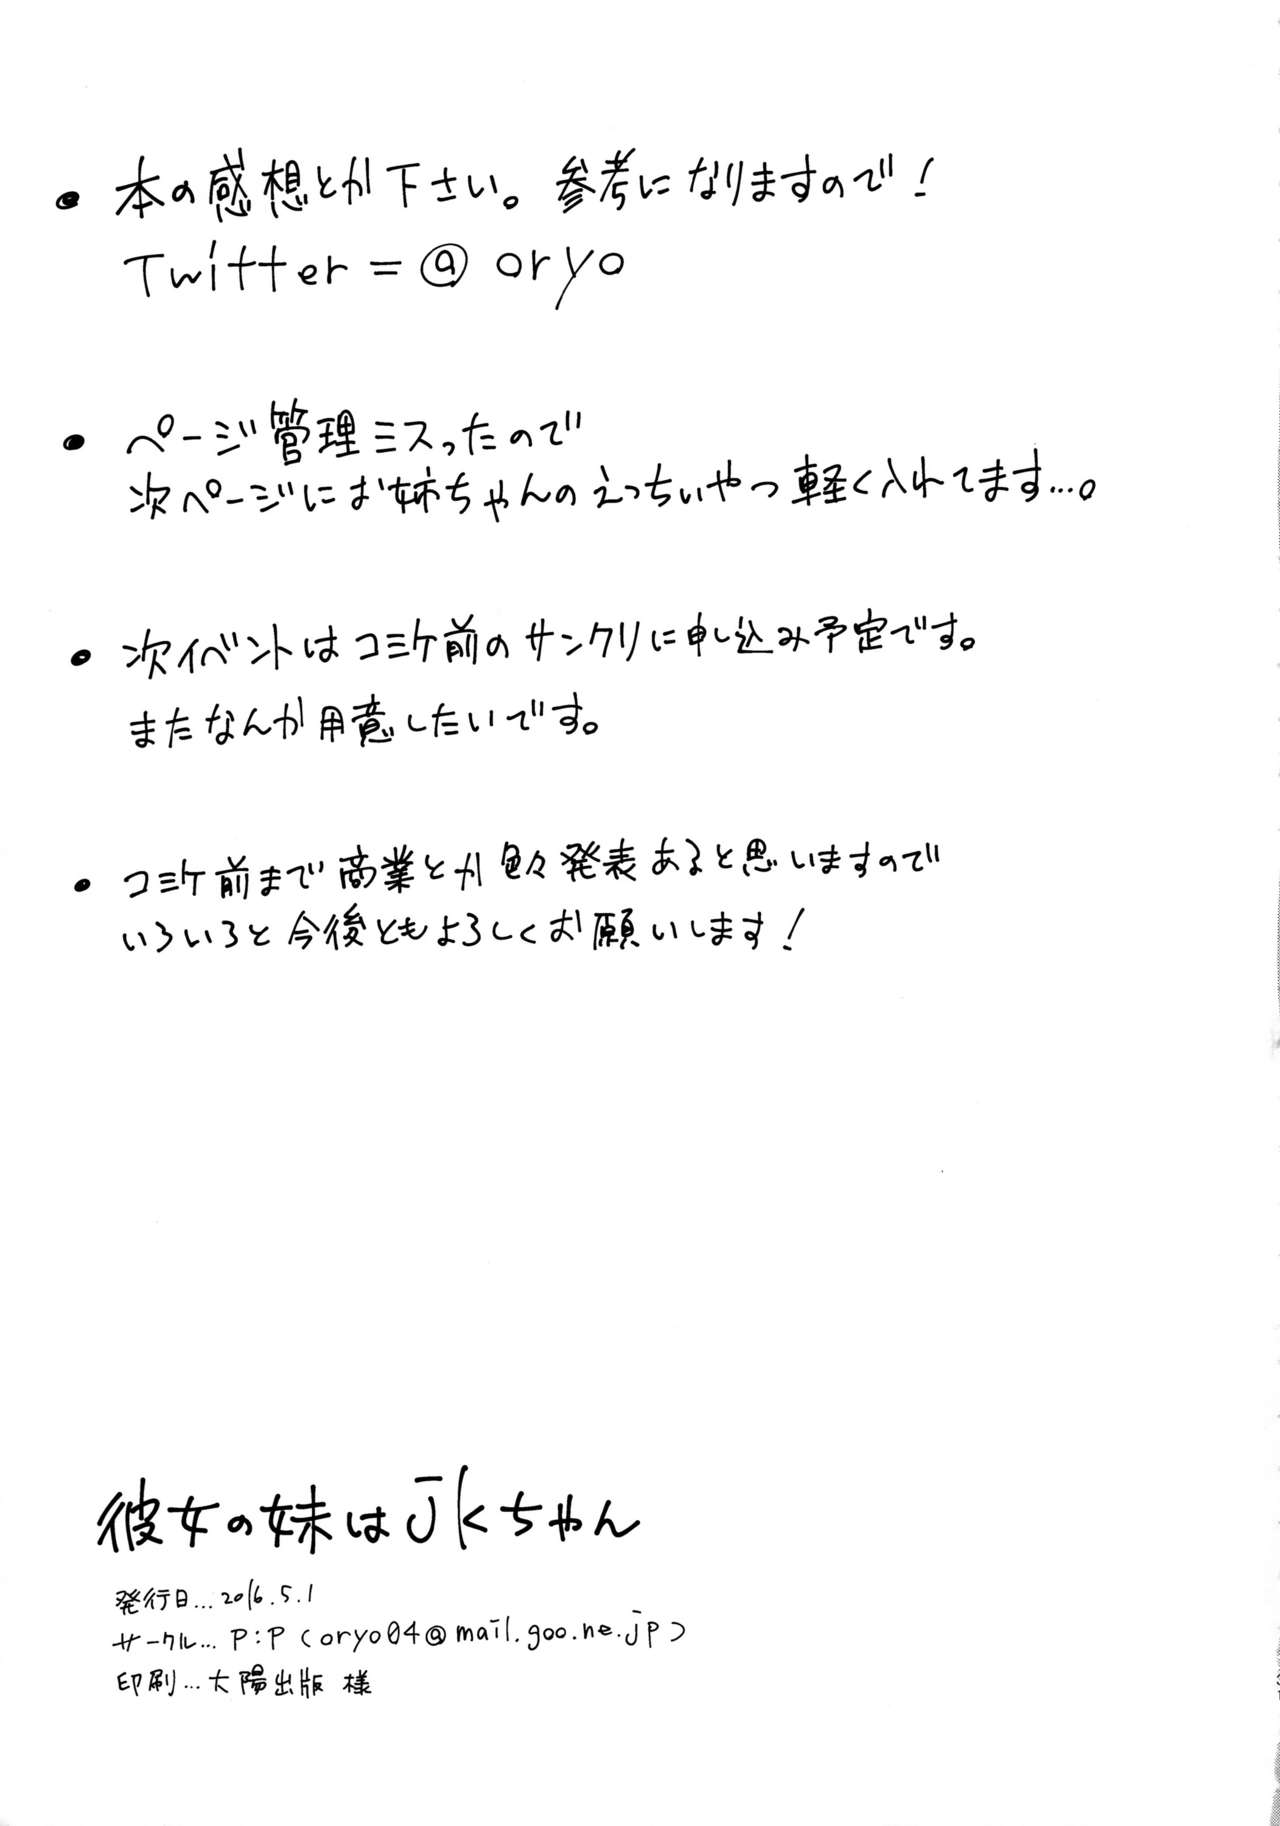 ● 本の感想とか下さい。参考になりますので！
Twitter=@oryo
● ページ管理ミスったので
次ページにお姉ちゃんのえっちいやつ軽く入れてます…。
● 次イベントはコミケ前のサンクリに申し込み予定です。
またなんか用意したいです。
● コミケ前まで商業とか色々発表あると思いますので
いろいろと今後ともよろしくお願いします！
彼女の妹はjkちゃん
発行日…2016.5.1
サークル…P:P(oryo04@mail.goo.ne.jp)
印刷…大陽出版 様